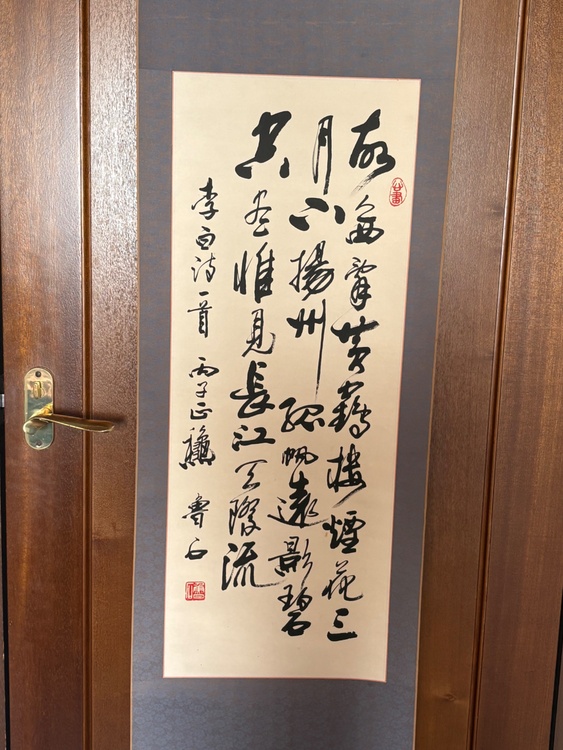 故人西辭黄鶴樓煙花三
月下揚州孤帆遠影碧
空盡惟見長江天際流
李白詩一首 丙子正龝 魯石